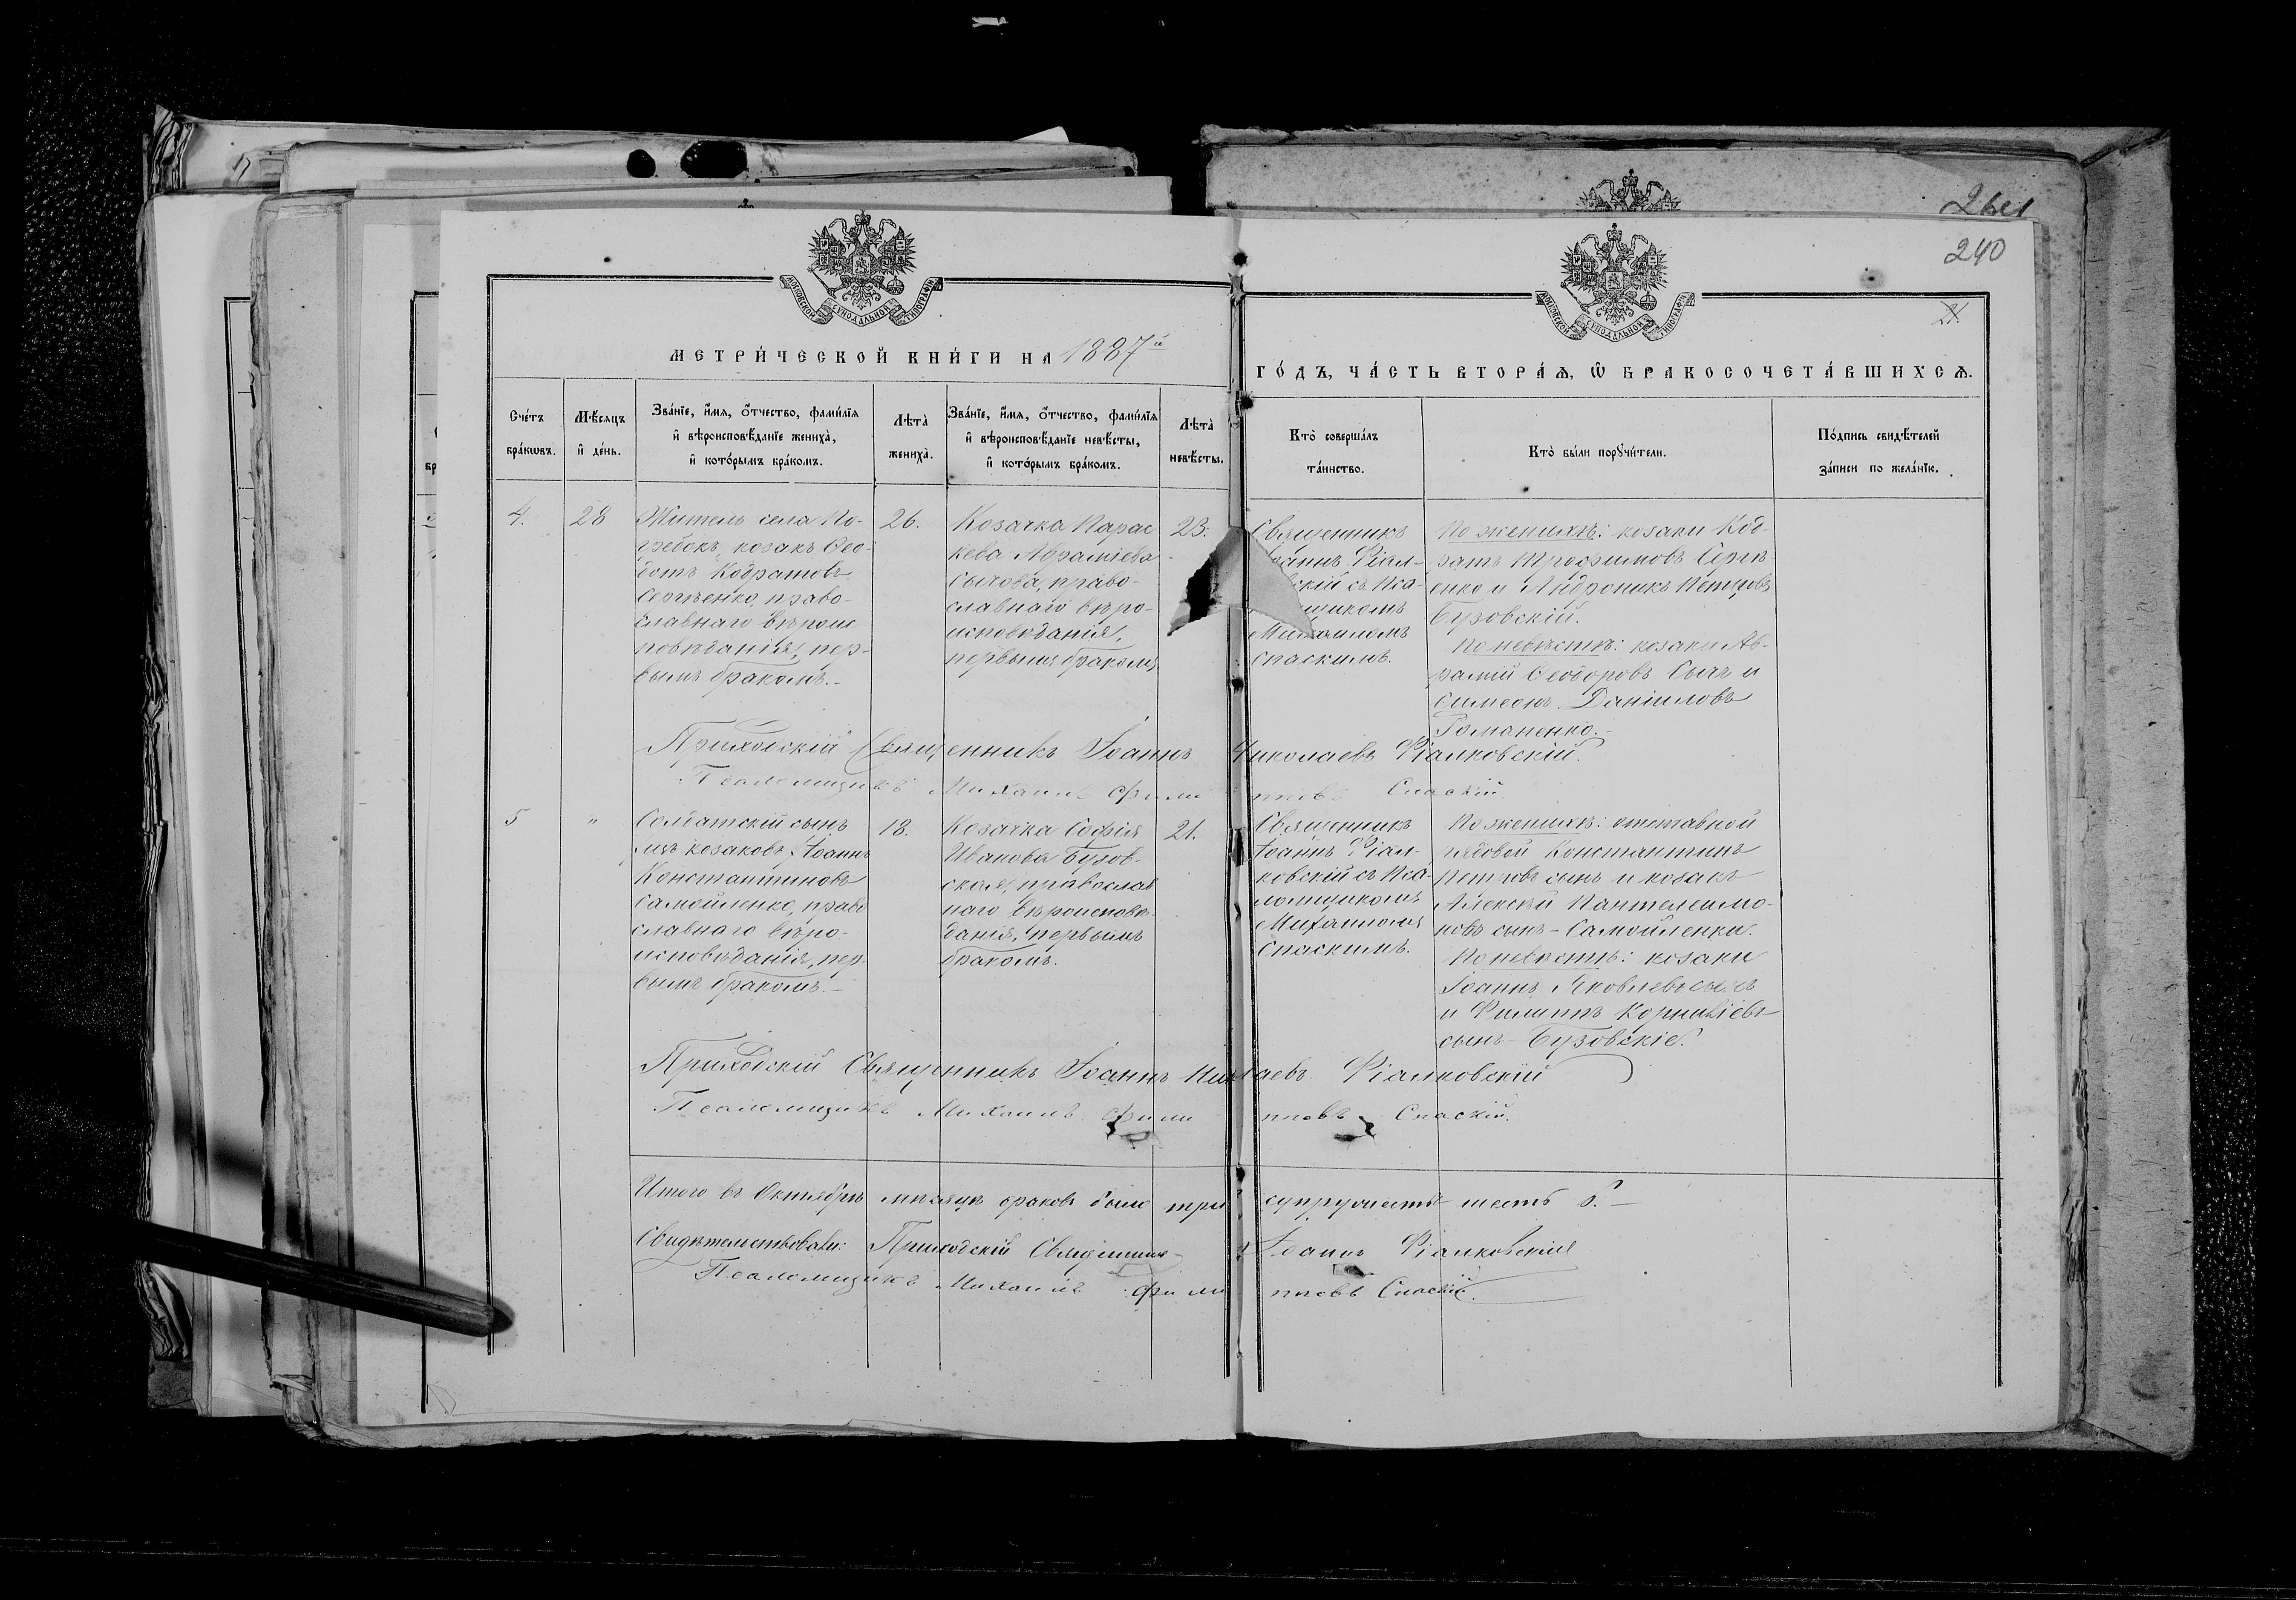 261
240
21.
МОСКОВСКОЙ СУНОДАЛЬНОЙ ТИПОГРАФІИ
МОСКОВСКОЙ СУНОДАЛЬНОЙ ТИПОГРАФІИ
МЕТРИ́ЧЕСКОЙ КНИ́ГИ НА 1887й
ГО́ДЪ, ЧА́СТЬ ВТОРА́Ѧ, Ѽ БРАКОСОЧЕТА́ВШИХСѦ.
Сче́тъ
бра́кωвъ.
Мѣ́сяцъ
и҆ де́нь.
Зва́нїе, и҆́мя, ѻ҆́тчество, фами́лїя
и҆ вѣроисповѣ́данїе жениха̀,
и҆ кото́рымъ бра́комъ.
Лѣта̀
жениха̀.
Зва́нїе, и҆́мя, ѻ҆́тчество, фами́лїя
и҆ вѣроисповѣ́данїе невѣ́сты,
и҆ кото́рымъ бра́комъ.
Лѣта̀
невѣ́сты.
Кто̀ соверша́лъ
та́инство.
Кто̀ бы́ли порꙋчи́тели.
По́дпись свидѣ́телей
за́писи по жела́нїю.
4.
28
Житель села По-
гребокъ, козакъ Ѳео-
дотъ Кодратовъ
Сергѣенко, право-
славнаго вѣроис
повѣданія, пер-
вымъ бракомъ.-
26.
Козачка Парас
кева Аврамiева
Сычова, право-
славнаго вѣро-
исповѣданія,
первымъ бракомъ
23.
Священникъ
Іоаннъ Ѳіал-
скій съ Пса-
щикомъ
Михаиломъ
Спаскимъ.
По женихѣ: козаки Код-
ратъ Трофимовъ Сергѣ
енко и Андроникъ Петровъ
Бузовскій.
По невѣстѣ: козаки Ав-
рамій Ѳеодоровъ Сычъ и
Симеонъ Даніиловъ
Романенко.-
Приходскій Священникъ Іоаннъ Николаевъ Ѳіалковскій.
Псаломщикъ Михаилъ Филипповъ Спаскій.
5
"
Солдатскій сынъ
изъ козаковъ, Іоаннъ
Константиновъ
Самойленко, право
славнаго вѣро-
исповѣданія, пер-
вымъ бракомъ.-
18.
Козачка Софія
Иванова Бузов-
ская, православ
наго вѣроисповѣ-
данія, первымъ
бракомъ.
21.
Священникъ
Іоаннъ Ѳіал-
ковскій съ Пса-
ломщикомъ
Михаиломъ
Спаскимъ.
По женихѣ: отставной
рядовой Константинъ
Петровъ сынъ и козакъ
Алексѣй Пантелеимо-
новъ сынъ - Самойленки.
По невѣстѣ: козаки
Іоаннъ Яковлевъ сынъ
и Филиппъ Корниліевъ
сынъ - Бузовскіе.
Приходскій Священникъ Іоаннъ Николаевъ Ѳіалковскій
Псаломщикъ Михаилъ Филипповъ Спаскій.
Итого въ Октябрѣ мѣсяцѣ браковъ было три супружествъ шесть 6.-
Свидѣтельствовали: Приходскій Священникъ Іоаннъ Ѳіалковскій
Псаломщикъ Михаилъ Филипповъ Спаскій.